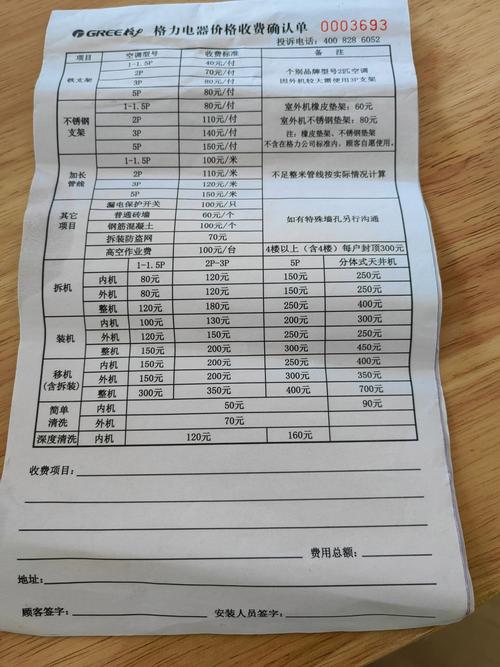 GREE格力 格力电器价格收费确认单 0003693
投诉电话：400 828 6052
空调型号 收费标准 备 注
铁支架 1-1.5P 40元/付 个别品牌型号2匹空调
2P 70元/付 因外机较大需使用3P支架
3P 80元/付
5P 80元/付
不锈钢支架 1-1.5P 80元/付 室外机橡皮垫架：60元
2P 110元/付 室外机不锈钢垫架：80元
3P 140元/付 注：橡皮垫架、不锈钢垫架
5P 150元/付 不含在格力公司标准内，顾客自愿使用。
加长管线 1-1.5P 100元/米 不足整米管线按实际情况计算
2P 110元/米
3P 120元/米
5P 150元/米
其它项目 漏电保护开关 100元/只 如有特殊墙孔另行沟通
普通砖墙 60元/个
钢筋混凝土 100元/个
拆装防盗网 70元
高空作业费 100元/台 4楼以上（含4楼）每户封顶300元
1-1.5P 2P-3P 5P 分体式天井机
拆机 内机 80元 120元 150元 250元
外机 80元 120元 150元 250元
整机 120元 180元 250元 400元
装机 内机 100元 130元 200元 250元
外机 120元 200元 250元 300元
整机 150元 200元 300元 450元
移机（含拆装） 内机 150元 200元 250元 400元
外机 150元 200元 300元 350元
整机 300元 350元 400元 700元
简单清洗 内机 50元 90元
外机 70元
深度清洗 内机 120元 160元
收费项目：
费用总额：
地址：
顾客签字： 安装人员签字：